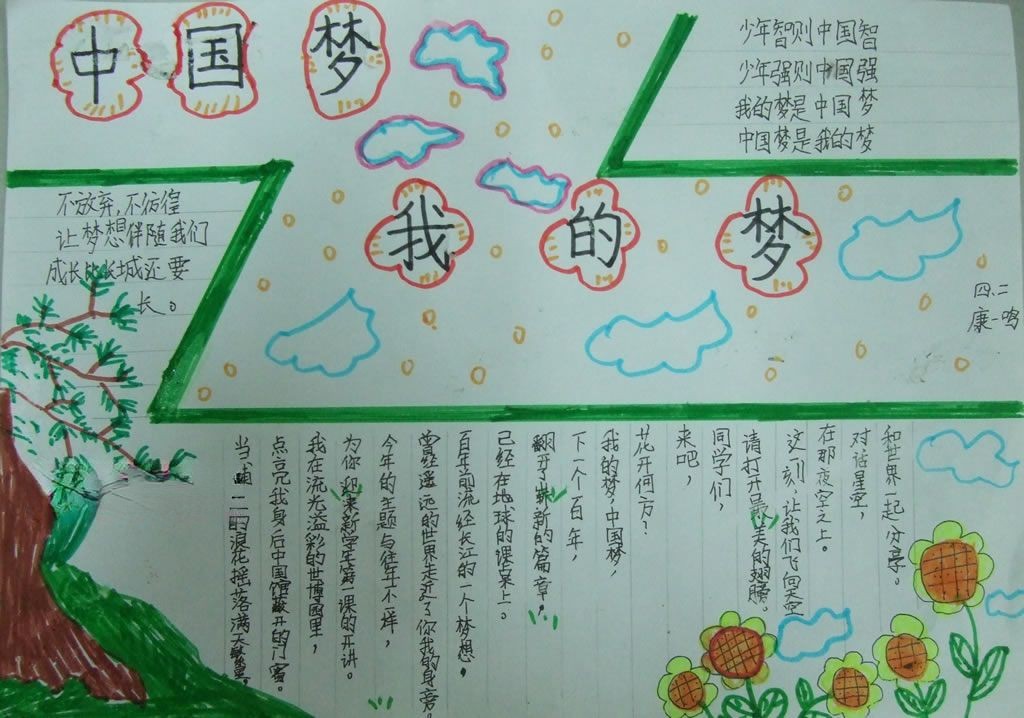 中国梦
少年智则中国智
少年强则中国强
我的梦是中国梦
中国梦是我的梦
不放弃,不彷徨
让梦想伴随我们
成长比长城还要
长。
我的梦
四、二
康一鸣
当浦二的浪花摇落满天繁星。
点亮我身后中国馆敞开的门窗。
我在流光溢彩的世博园里,
为你迎来新学年第一课的开讲。
今年的主题与往年不一样,
曾经遥远的世界走近了你我的身旁。
百年前流经长江的一个梦想,
已经在地球的课桌上。
翻开了崭新的篇章。
下一个百年,
我的梦,中国梦,
花开何方?
来吧,
同学们,
请打开最美的翅膀。
这一刻,让我们飞向天空
在那夜空之上。
对话星空,
和世界一起分享。